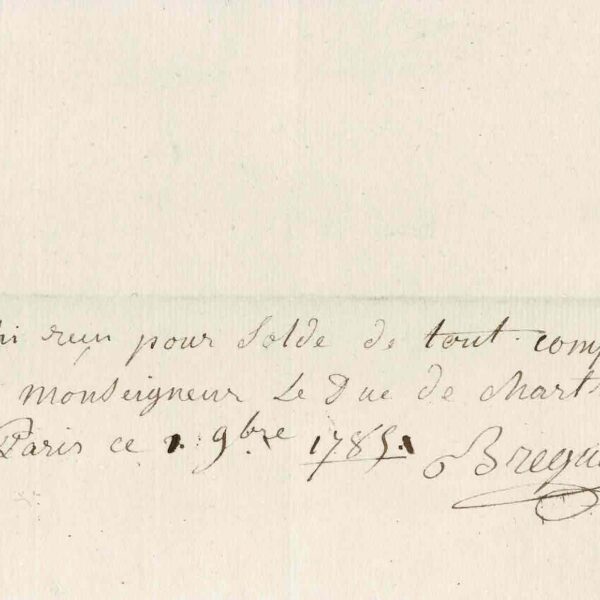 hi reçu pour Solde de tout comp
monseigneur Le Duc de chart
Paris ce 1. 9bre 1785.
Bregu